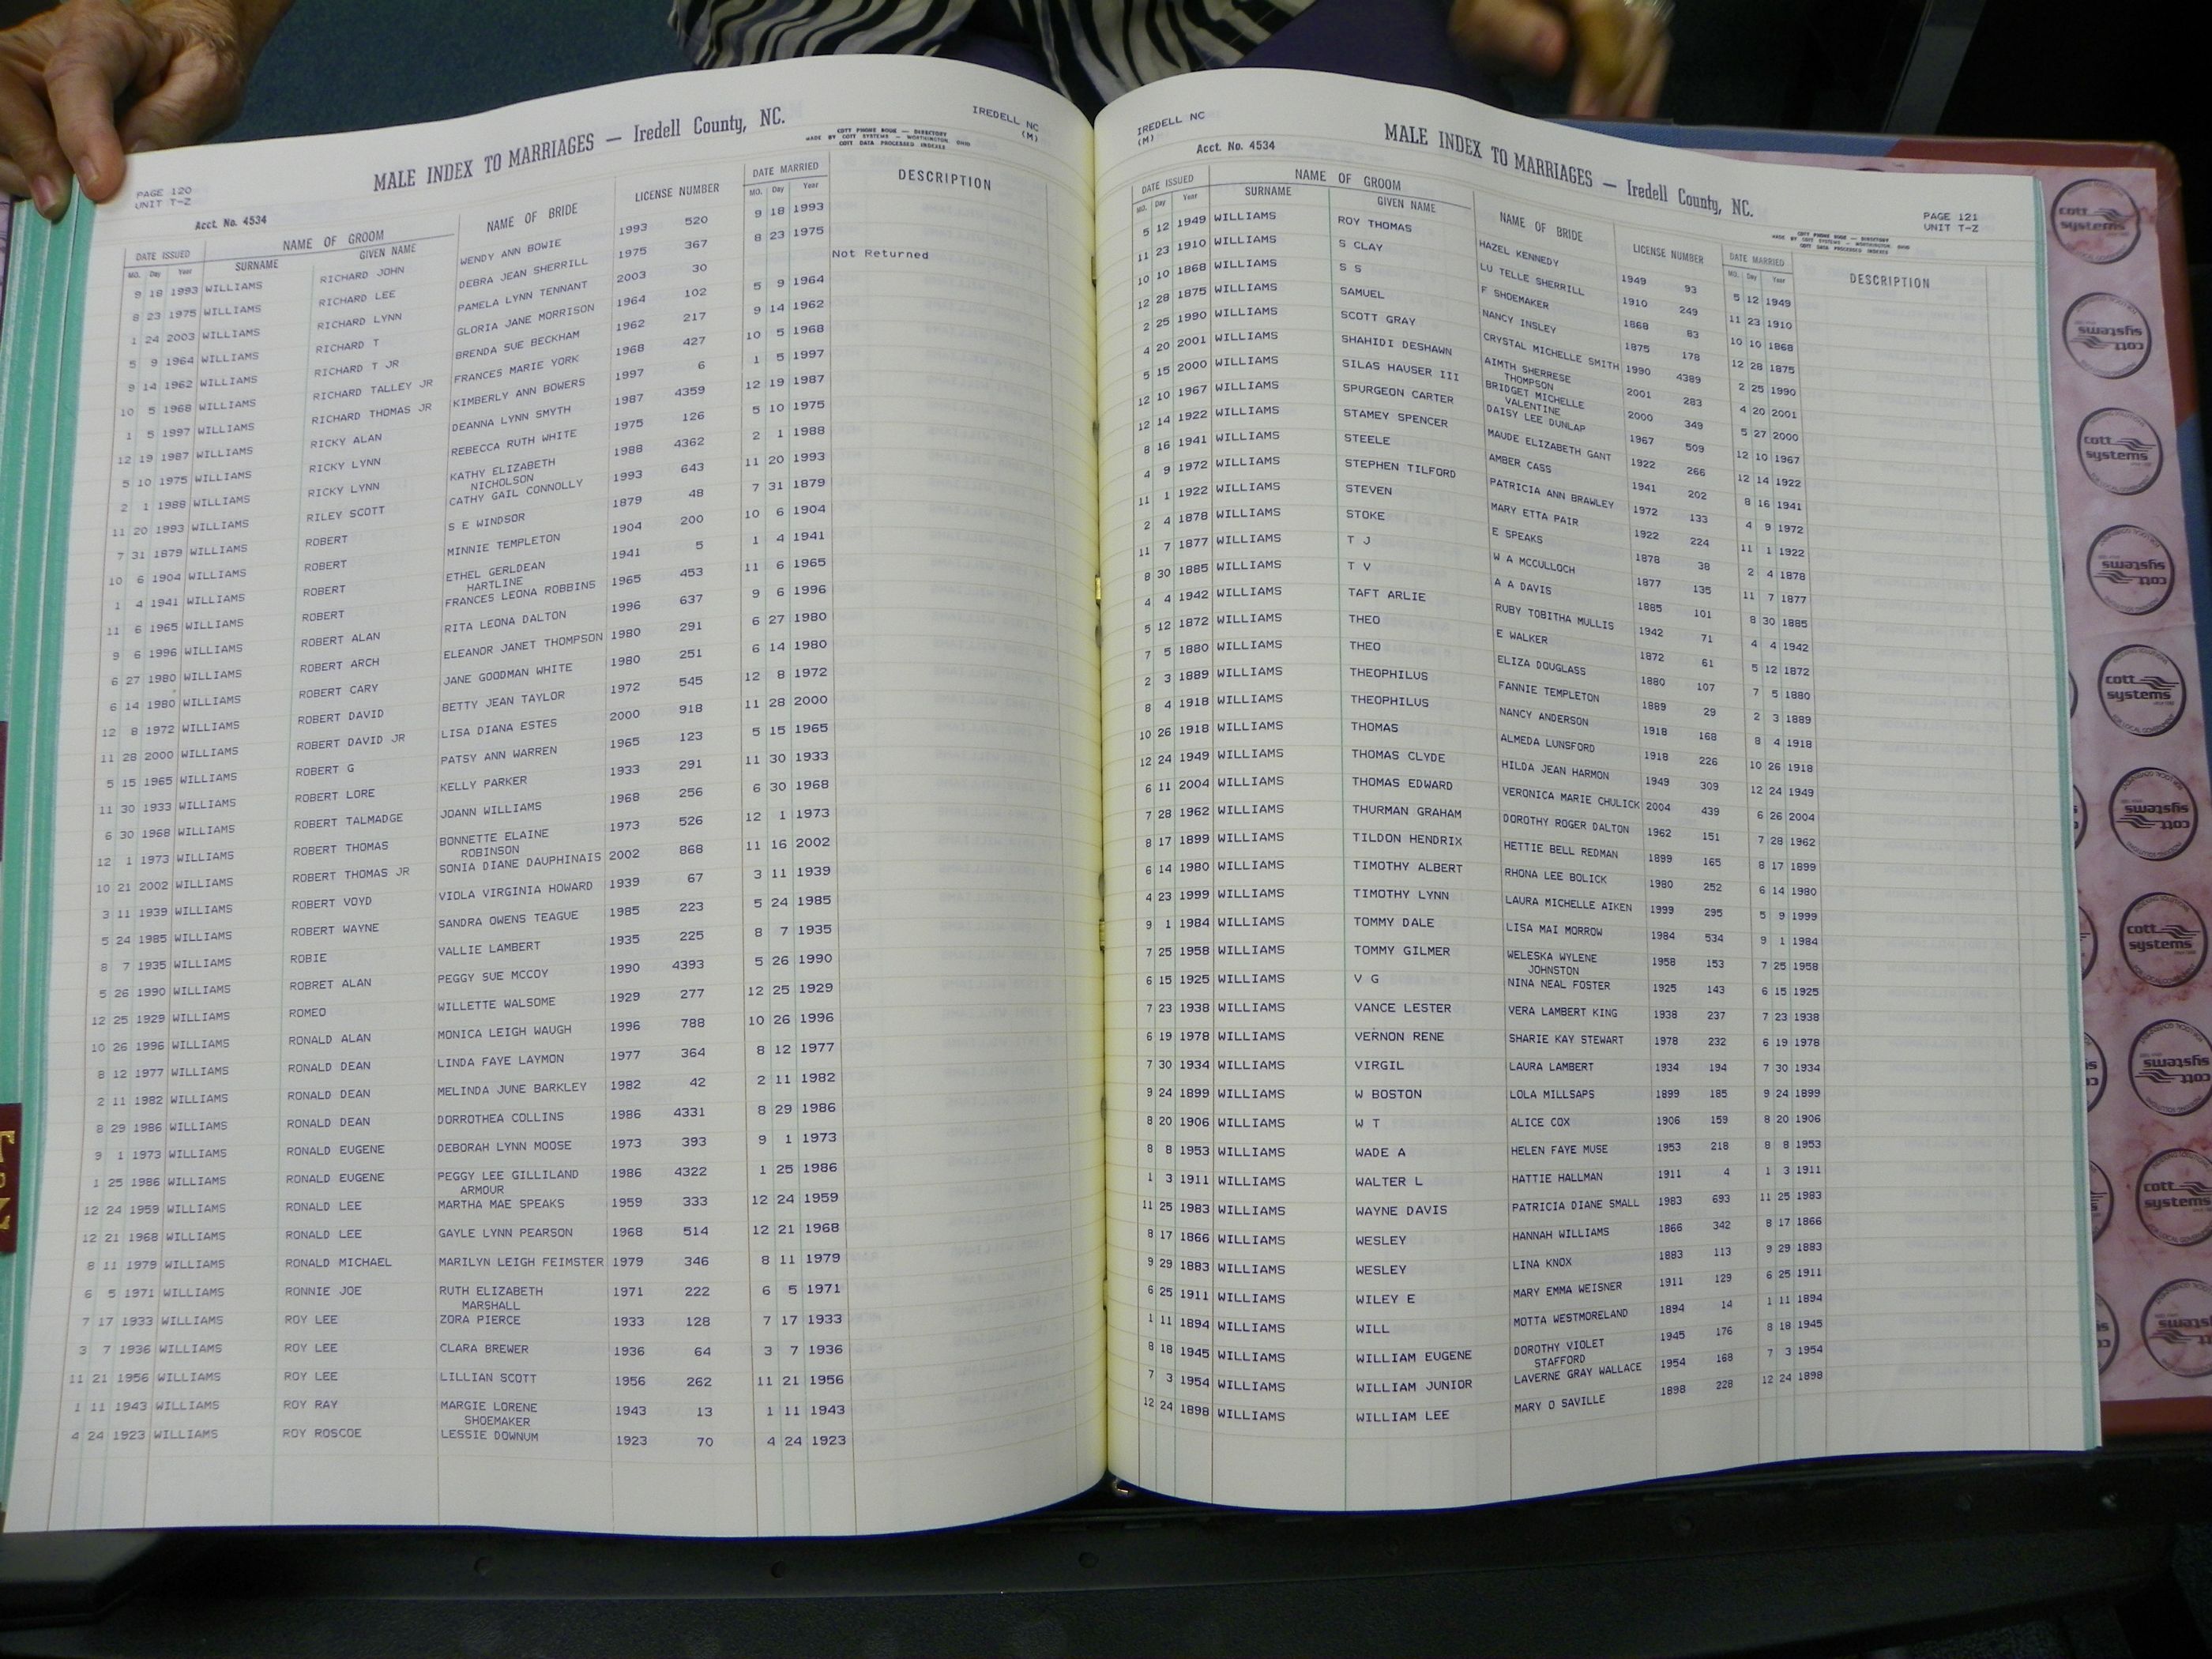 PAGE 120
UNIT T-Z
MALE INDEX TO MARRIAGES — Iredell County, NC.
COTT PHONE BOUE — DIRECTORY
MADE BY COTT SYSTEMS — WORTHINGTON, OHIO
COTT DATA PROCESSED INDEXES
IREDELL NC
(M)
Acct. No. 4534
DATE ISSUED NAME OF GROOM NAME OF BRIDE LICENSE NUMBER DATE MARRIED DESCRIPTION
MO. Day Year SURNAME GIVEN NAME MO. Day Year
9 18 1993 WILLIAMS RICHARD JOHN WENDY ANN BOWIE 1993 520 9 18 1993
8 23 1975 WILLIAMS RICHARD LEE DEBRA JEAN SHERRILL 1975 367 8 23 1975
1 24 2003 WILLIAMS RICHARD LYNN PAMELA LYNN TENNANT 2003 30 Not Returned
5 9 1964 WILLIAMS RICHARD T GLORIA JANE MORRISON 1964 102 5 9 1964
9 14 1962 WILLIAMS RICHARD T JR BRENDA SUE BECKHAM 1962 217 9 14 1962
10 5 1968 WILLIAMS RICHARD TALLEY JR FRANCES MARIE YORK 1968 427 10 5 1968
1 5 1997 WILLIAMS RICHARD THOMAS JR KIMBERLY ANN BOWERS 1997 6 1 5 1997
12 19 1987 WILLIAMS RICKY ALAN DEANNA LYNN SMYTH 1987 4359 12 19 1987
5 10 1975 WILLIAMS RICKY LYNN REBECCA RUTH WHITE 1975 126 5 10 1975
2 1 1988 WILLIAMS RICKY LYNN KATHY ELIZABETH 1988 4362 2 1 1988
NICHOLSON
11 20 1993 WILLIAMS RILEY SCOTT CATHY GAIL CONNOLLY 1993 643 11 20 1993
7 31 1879 WILLIAMS ROBERT S E WINDSOR 1879 48 7 31 1879
10 6 1904 WILLIAMS ROBERT MINNIE TEMPLETON 1904 200 10 6 1904
1 4 1941 WILLIAMS ROBERT ETHEL GERLDEAN 1941 5 1 4 1941
HARTLINE
11 6 1965 WILLIAMS ROBERT FRANCES LEONA ROBBINS 1965 453 11 6 1965
9 6 1996 WILLIAMS ROBERT ALAN RITA LEONA DALTON 1996 637 9 6 1996
6 27 1980 WILLIAMS ROBERT ARCH ELEANOR JANET THOMPSON 1980 291 6 27 1980
6 14 1980 WILLIAMS ROBERT CARY JANE GOODMAN WHITE 1980 251 6 14 1980
12 8 1972 WILLIAMS ROBERT DAVID BETTY JEAN TAYLOR 1972 545 12 8 1972
11 28 2000 WILLIAMS ROBERT DAVID JR LISA DIANA ESTES 2000 918 11 28 2000
5 15 1965 WILLIAMS ROBERT G PATSY ANN WARREN 1965 123 5 15 1965
11 30 1933 WILLIAMS ROBERT LORE KELLY PARKER 1933 291 11 30 1933
6 30 1968 WILLIAMS ROBERT TALMADGE JOANN WILLIAMS 1968 256 6 30 1968
12 1 1973 WILLIAMS ROBERT THOMAS BONNETTE ELAINE 1973 526 12 1 1973
ROBINSON
10 21 2002 WILLIAMS ROBERT THOMAS JR SONIA DIANE DAUPHINAIS 2002 868 11 16 2002
3 11 1939 WILLIAMS ROBERT VOYD VIOLA VIRGINIA HOWARD 1939 67 3 11 1939
5 24 1985 WILLIAMS ROBERT WAYNE SANDRA OWENS TEAGUE 1985 223 5 24 1985
8 7 1935 WILLIAMS ROBIE VALLIE LAMBERT 1935 225 8 7 1935
5 26 1990 WILLIAMS ROBRET ALAN PEGGY SUE MCCOY 1990 4393 5 26 1990
12 25 1929 WILLIAMS ROMEO WILLETTE WALSOME 1929 277 12 25 1929
10 26 1996 WILLIAMS RONALD ALAN MONICA LEIGH WAUGH 1996 788 10 26 1996
8 12 1977 WILLIAMS RONALD DEAN LINDA FAYE LAYMON 1977 364 8 12 1977
2 11 1982 WILLIAMS RONALD DEAN MELINDA JUNE BARKLEY 1982 42 2 11 1982
8 29 1986 WILLIAMS RONALD DEAN DORROTHEA COLLINS 1986 4331 8 29 1986
9 1 1973 WILLIAMS RONALD EUGENE DEBORAH LYNN MOOSE 1973 393 9 1 1973
1 25 1986 WILLIAMS RONALD EUGENE PEGGY LEE GILLILAND 1986 4322 1 25 1986
ARMOUR
12 24 1959 WILLIAMS RONALD LEE MARTHA MAE SPEAKS 1959 333 12 24 1959
12 21 1968 WILLIAMS RONALD LEE GAYLE LYNN PEARSON 1968 514 12 21 1968
8 11 1979 WILLIAMS RONALD MICHAEL MARILYN LEIGH FEIMSTER 1979 346 8 11 1979
6 5 1971 WILLIAMS RONNIE JOE RUTH ELIZABETH 1971 222 6 5 1971
MARSHALL
7 17 1933 WILLIAMS ROY LEE ZORA PIERCE 1933 128 7 17 1933
3 7 1936 WILLIAMS ROY LEE CLARA BREWER 1936 64 3 7 1936
11 21 1956 WILLIAMS ROY LEE LILLIAN SCOTT 1956 262 11 21 1956
1 11 1943 WILLIAMS ROY RAY MARGIE LORENE 1943 13 1 11 1943
SHOEMAKER
4 24 1923 WILLIAMS ROY ROSCOE LESSIE DOWNUM 1923 70 4 24 1923
IREDELL NC
(M)
Acct. No. 4534
MALE INDEX TO MARRIAGES — Iredell County, NC.
COTT PHONE BOUE — DIRECTORY
MADE BY COTT SYSTEMS — WORTHINGTON, OHIO
COTT DATA PROCESSED INDEXES
PAGE 121
UNIT T-Z
DATE ISSUED NAME OF GROOM NAME OF BRIDE LICENSE NUMBER DATE MARRIED DESCRIPTION
MO. Day Year SURNAME GIVEN NAME MO. Day Year
5 12 1949 WILLIAMS ROY THOMAS HAZEL KENNEDY 1949 93 5 12 1949
11 23 1910 WILLIAMS S CLAY LU TELLE SHERRILL 1910 249 11 23 1910
10 10 1868 WILLIAMS S S F SHOEMAKER 1868 83 10 10 1868
12 28 1875 WILLIAMS SAMUEL NANCY INSLEY 1875 178 12 28 1875
2 25 1990 WILLIAMS SCOTT GRAY CRYSTAL MICHELLE SMITH 1990 4389 2 25 1990
4 20 2001 WILLIAMS SHAHIDI DESHAWN AIMTH SHERRESE 2001 283 4 20 2001
THOMPSON
5 15 2000 WILLIAMS SILAS HAUSER III BRIDGET MICHELLE 2000 349 5 27 2000
VALENTINE
12 10 1967 WILLIAMS SPURGEON CARTER DAISY LEE DUNLAP 1967 509 12 10 1967
12 14 1922 WILLIAMS STAMEY SPENCER MAUDE ELIZABETH GANT 1922 266 12 14 1922
8 16 1941 WILLIAMS STEELE AMBER CASS 1941 202 8 16 1941
4 9 1972 WILLIAMS STEPHEN TILFORD PATRICIA ANN BRAWLEY 1972 133 4 9 1972
11 1 1922 WILLIAMS STEVEN MARY ETTA PAIR 1922 224 11 1 1922
2 4 1878 WILLIAMS STOKE E SPEAKS 1878 38 2 4 1878
11 7 1877 WILLIAMS T J W A MCCULLOCH 1877 135 11 7 1877
8 30 1885 WILLIAMS T V A A DAVIS 1885 101 8 30 1885
4 4 1942 WILLIAMS TAFT ARLIE RUBY TOBITHA MULLIS 1942 71 4 4 1942
5 12 1872 WILLIAMS THEO E WALKER 1872 61 5 12 1872
7 5 1880 WILLIAMS THEO ELIZA DOUGLASS 1880 107 7 5 1880
2 3 1889 WILLIAMS THEOPHILUS FANNIE TEMPLETON 1889 29 2 3 1889
8 4 1918 WILLIAMS THEOPHILUS NANCY ANDERSON 1918 168 8 4 1918
10 26 1918 WILLIAMS THOMAS ALMEDA LUNSFORD 1918 226 10 26 1918
12 24 1949 WILLIAMS THOMAS CLYDE HILDA JEAN HARMON 1949 309 12 24 1949
6 11 2004 WILLIAMS THOMAS EDWARD VERONICA MARIE CHULICK 2004 439 6 26 2004
7 28 1962 WILLIAMS THURMAN GRAHAM DOROTHY ROGER DALTON 1962 151 7 28 1962
8 17 1899 WILLIAMS TILDON HENDRIX HETTIE BELL REDMAN 1899 165 8 17 1899
6 14 1980 WILLIAMS TIMOTHY ALBERT RHONA LEE BOLICK 1980 252 6 14 1980
4 23 1999 WILLIAMS TIMOTHY LYNN LAURA MICHELLE AIKEN 1999 295 5 9 1999
9 1 1984 WILLIAMS TOMMY DALE LISA MAI MORROW 1984 534 9 1 1984
7 25 1958 WILLIAMS TOMMY GILMER WELESKA WYLENE 1958 153 7 25 1958
JOHNSTON
6 15 1925 WILLIAMS V G NINA NEAL FOSTER 1925 143 6 15 1925
7 23 1938 WILLIAMS VANCE LESTER VERA LAMBERT KING 1938 237 7 23 1938
6 19 1978 WILLIAMS VERNON RENE SHARIE KAY STEWART 1978 232 6 19 1978
7 30 1934 WILLIAMS VIRGIL LAURA LAMBERT 1934 194 7 30 1934
9 24 1899 WILLIAMS W BOSTON LOLA MILLSAPS 1899 185 9 24 1899
8 20 1906 WILLIAMS W T ALICE COX 1906 159 8 20 1906
8 8 1953 WILLIAMS WADE A HELEN FAYE MUSE 1953 218 8 8 1953
1 3 1911 WILLIAMS WALTER L HATTIE HALLMAN 1911 4 1 3 1911
11 25 1983 WILLIAMS WAYNE DAVIS PATRICIA DIANE SMALL 1983 693 11 25 1983
8 17 1866 WILLIAMS WESLEY HANNAH WILLIAMS 1866 342 8 17 1866
9 29 1883 WILLIAMS WESLEY LINA KNOX 1883 113 9 29 1883
6 25 1911 WILLIAMS WILEY E MARY EMMA WEISNER 1911 129 6 25 1911
1 11 1894 WILLIAMS WILL MOTTA WESTMORELAND 1894 14 1 11 1894
8 18 1945 WILLIAMS WILLIAM EUGENE DOROTHY VIOLET 1945 176 8 18 1945
STAFFORD
7 3 1954 WILLIAMS WILLIAM JUNIOR LAVERNE GRAY WALLACE 1954 168 7 3 1954
12 24 1898 WILLIAMS WILLIAM LEE MARY O SAVILLE 1898 228 12 24 1898
cott
systems
cott
systems
cott
systems
cott
systems
cott
systems
cott
systems
cott
systems
cott
systems
cott
systems
cott
systems